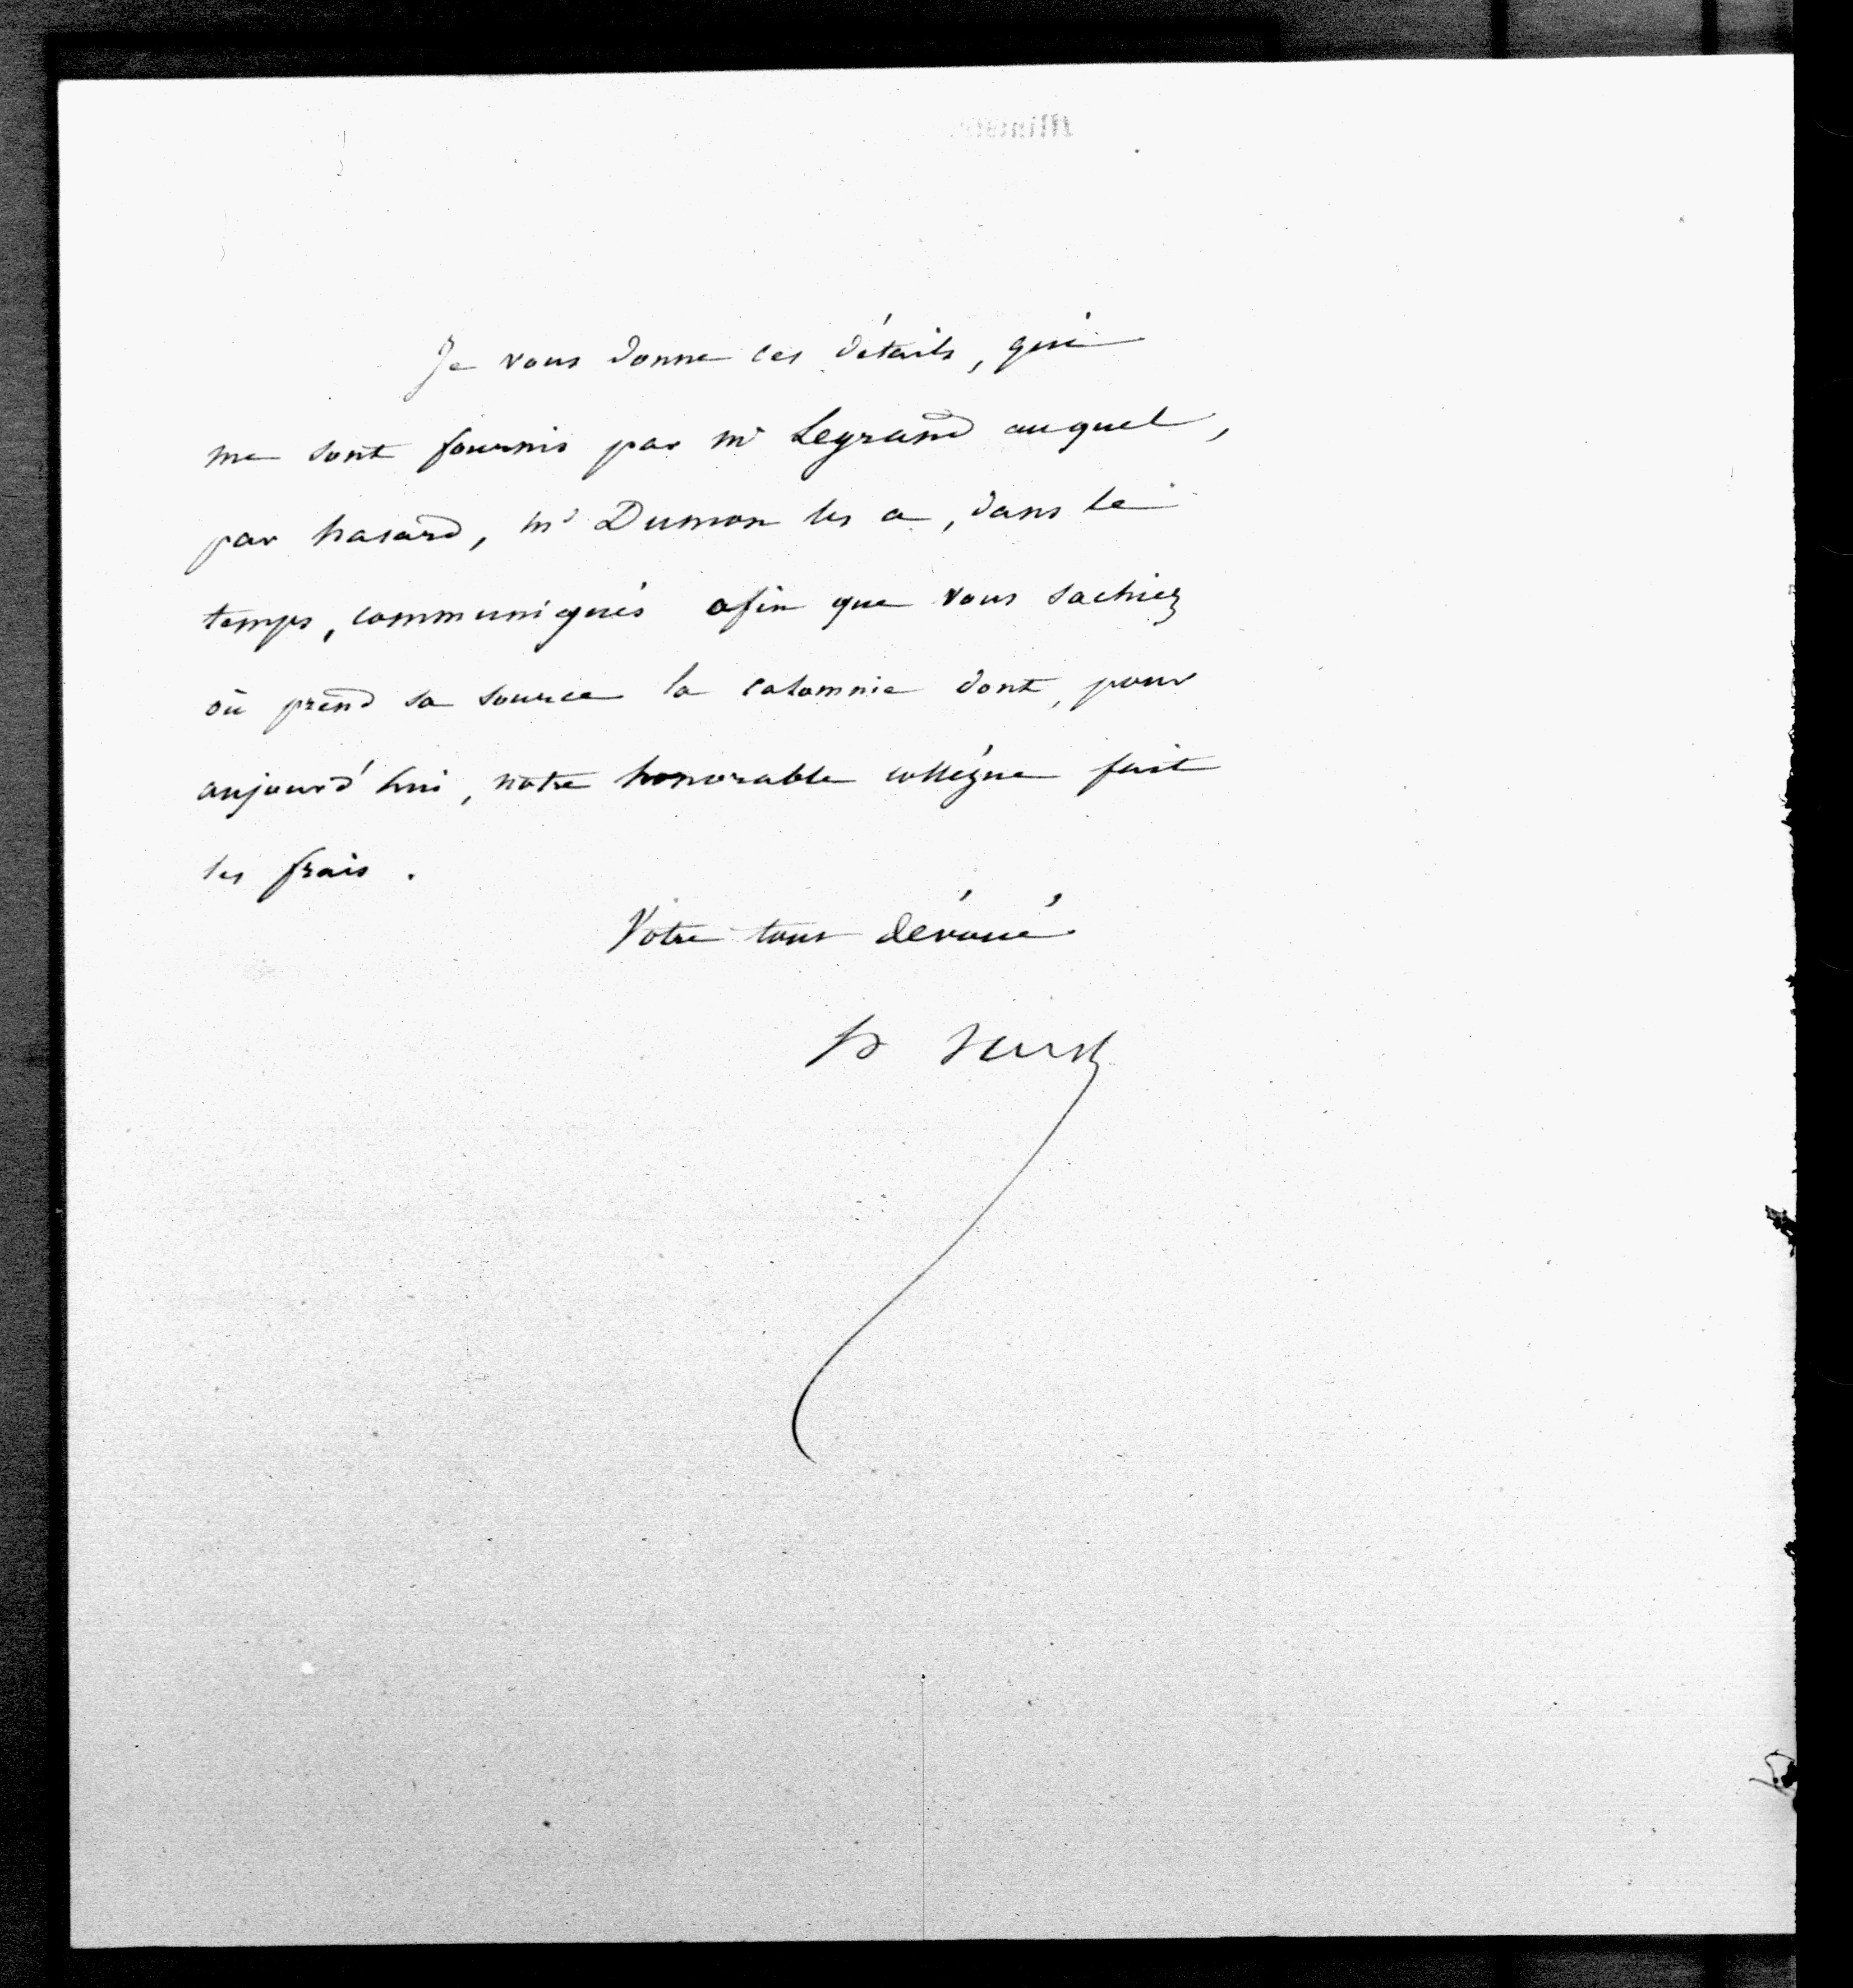 Je vous donne ces détails, qui
me sont fournis par Mr Legrand auquel,
par hasard, Mr Dumon les a, dans le
temps, communiqués afin que vous sachiez
où prend sa source la calomnie dont, pour
aujourd'hui, notre honorable collègue fait
les frais.
Votre tout dévoué